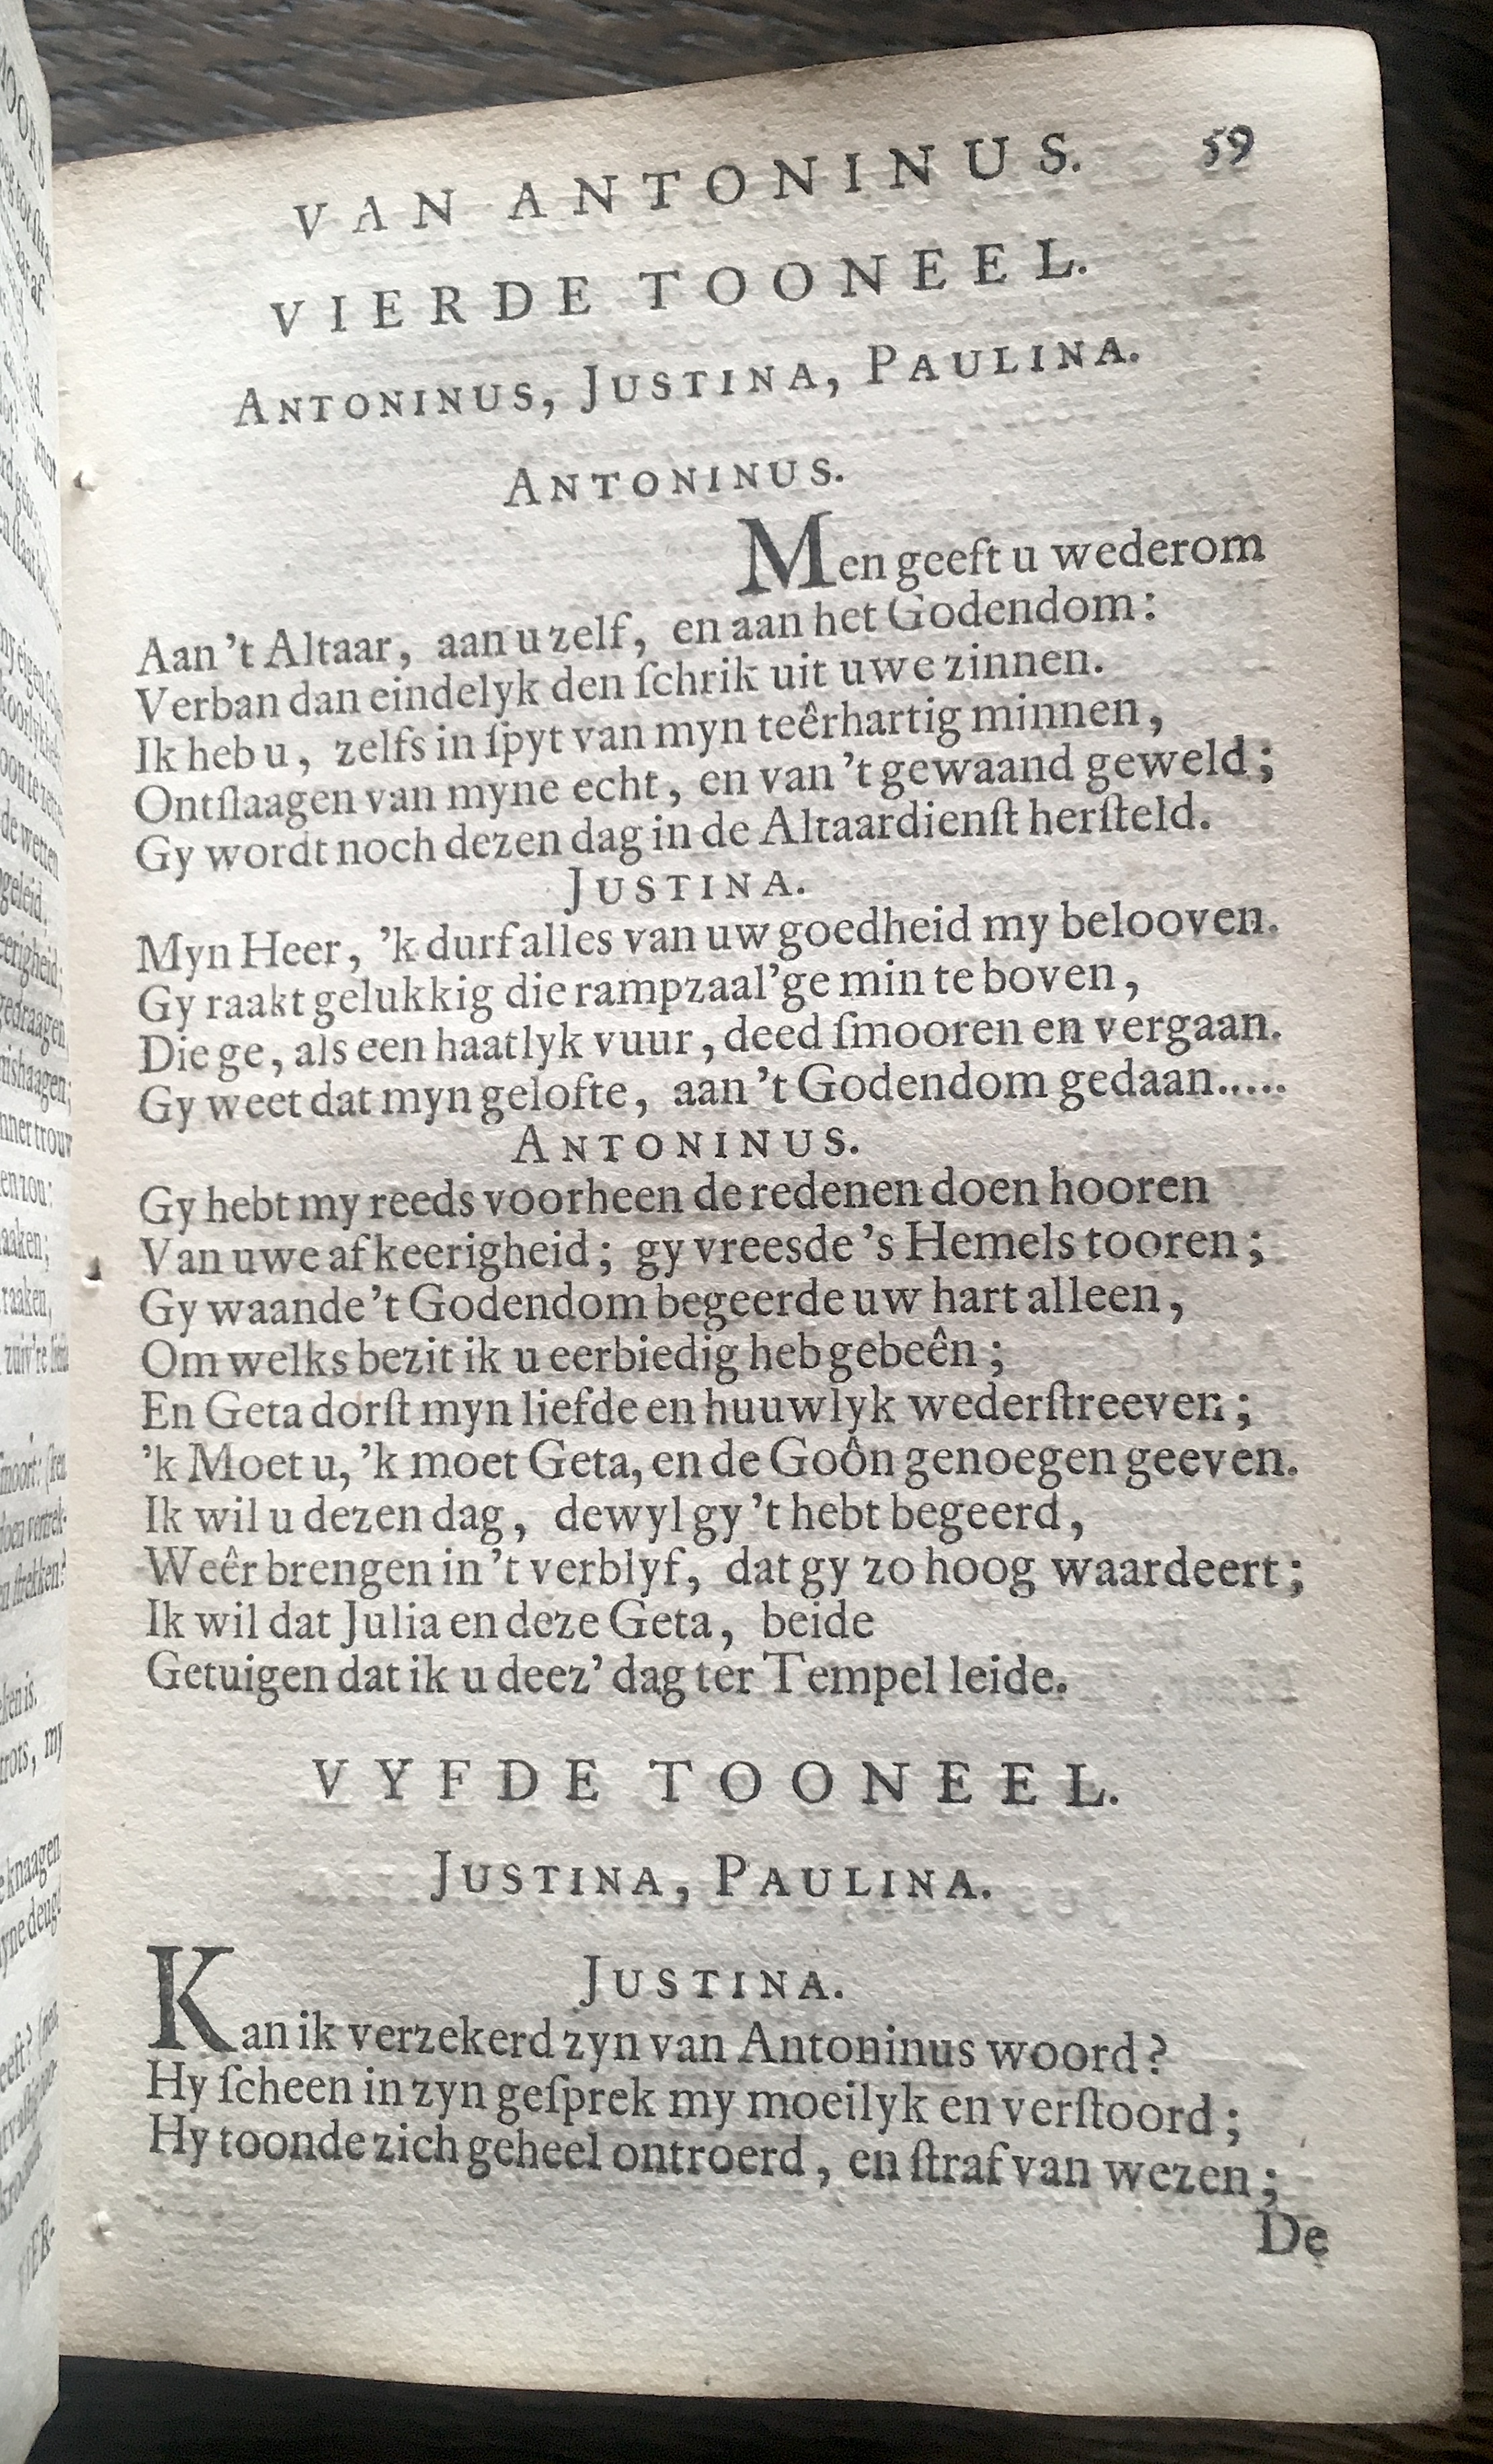 VAN ANTONINUS. 59
VIERDE TOONEEL.
ANTONINUS, JUSTINA, PAULINA.
ANTONINUS.
Men geeft u wederom
Aan 't Altaar, aan u zelf, en aan het Godendom:
Verban dan eindelyk den ſchrik uit uwe zinnen.
Ik heb u, zelfs in ſpyt van myn teêrhartig minnen,
Ontſlaagen van myne echt, en van 't gewaand geweld;
Gy wordt noch dezen dag in de Altaardienſt herſteld.
JUSTINA.
Myn Heer, 'k durf alles van uw goedheid my belooven.
Gy raakt gelukkig die rampzaal'ge min te boven,
Die ge, als een haatlyk vuur, deed ſmooren en vergaan.
Gy weet dat myn gelofte, aan 't Godendom gedaan.....
ANTONINUS.
Gy hebt my reeds voorheen de redenen doen hooren
Van uwe afkeerigheid; gy vreesde 's Hemels tooren;
Gy waande 't Godendom begeerde uw hart alleen,
Om welks bezit ik u eerbiedig heb gebeên;
En Geta dorſt myn liefde en huuwlyk wederſtreeven;
'k Moet u, 'k moet Geta, en de Goôn genoegen geeven.
Ik wil u dezen dag, dewyl gy 't hebt begeerd,
Weêr brengen in 't verblyf, dat gy zo hoog waardeert;
Ik wil dat Julia en deze Geta, beide
Getuigen dat ik u deez' dag ter Tempel leide.
VYFDE TOONEEL.
JUSTINA, PAULINA.
JUSTINA.
Kan ik verzekerd zyn van Antoninus woord?
Hy ſcheen in zyn geſprek my moeilyk en verſtoord;
Hy toonde zich geheel ontroerd, en ſtraf van wezen;
De